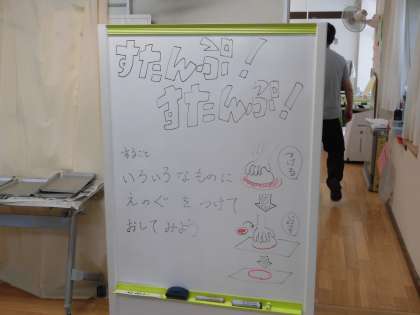 すたんぷ！
すたんぷ！
すること
いろいろなものに
えのぐをつけて
おしてみよう
つける